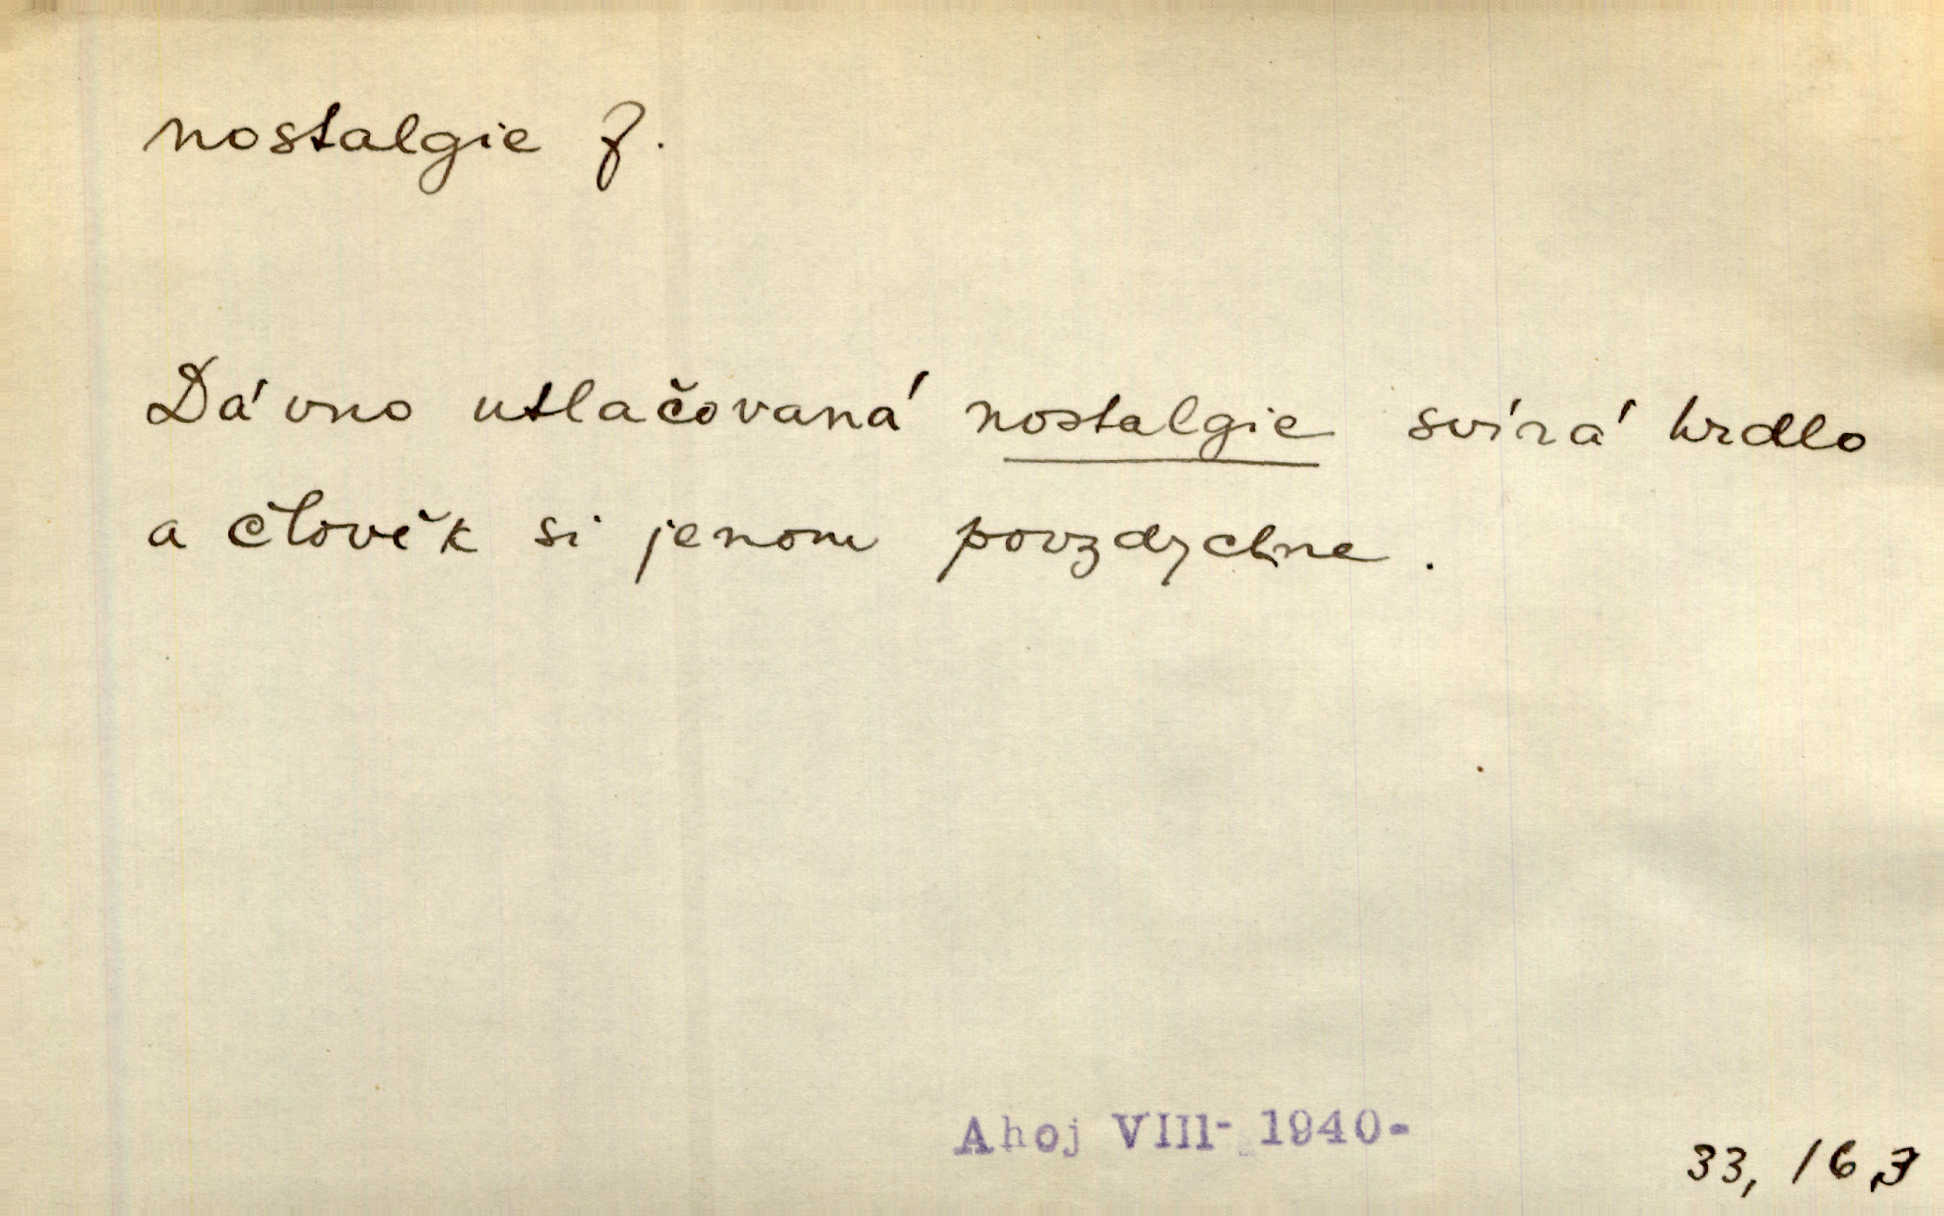 nostalgie f.
Dávno utlačovaná nostalgie svírá hrdlo
a člověk si jenom povzdychne.
Ahoj VIII- 1940-
33, 16,3